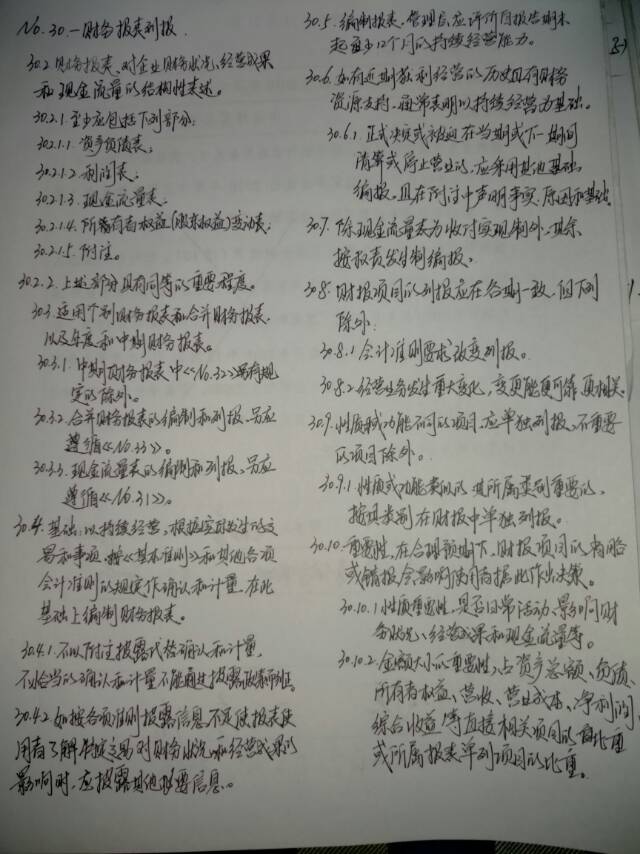 No.30.—财务报表列报.
30.2 财务报表, 对企业财务状况、经营成果
和现金流量的结构性表述。
30.2.1 至少应包括下列部分:
30.2.1.1 资产负债表;
30.2.1.2 利润表;
30.2.1.3 现金流量表;
30.2.1.4. 所有者权益(股东权益)变动表;
30.2.1.5. 附注。
30.2.2. 上述部分具有同等的重要程度。
30.3. 适用个别财务报表和合并财务报表,
以及年度和中期财务报表。
30.3.1. 中期财务报表中《No.32》另有规
定的除外。
30.3.2. 合并财务报表的编制和列报, 另应
遵循《No.33》。
30.3.3. 现金流量表的编制和列报, 另应
遵循《No.31》。
30.4. 基础: 以持续经营, 根据实际发生的交
易和事项, 按《基本准则》和其他各项
会计准则的规定作确认和计量, 在此
基础上编制财务报表。
30.4.1. 不以附注披露代替确认和计量,
不恰当的确认和计量不能通过披露政策纠正。
30.4.2 如按各项准则披露信息不足使报表使
用者了解特定交易对财务状况和经营成果的
影响时, 应披露其他必要信息。
30.5. 编制报表, 管理层应评价自报告期末
起至少12个月的持续经营能力。
30.6. 如有近期获利经营的历史且有财务
资源支持, 通常表明以持续经营为基础。
30.6.1. 正式决定或被迫在当期或下一期间
清算或停止营业的, 应采用其他基础
编报, 且在附注中声明事实、原因和基础。
30.7. 除现金流量表为收付实现制外, 其余
按权责发生制编报。
30.8. 财报项目的列报应在各期一致, 但下列
除外:
30.8.1 会计准则要求改变列报。
30.8.2 经营业务发生重大变化, 变更能更可靠、更相关
30.9. 性质或功能不同的项目, 应单独列报, 不重要
的项目除外。
30.9.1 性质或功能类似的, 其所属类别重要的,
按其类别在财报中单独列报。
30.10. 重要性, 在合理预期下, 财报项目的省略
或错报会影响使用者据此作出决策。
30.10.1 性质重要性, 是否日常活动、影响财
务状况、经营成果和现金流量等。
30.10.2. 金额大小的重要性, 占资产总额、负债、
所有者权益、营收、营业成本、净利润、
综合收益等直接相关项目的占比重
或所属报表单列项目的比重。